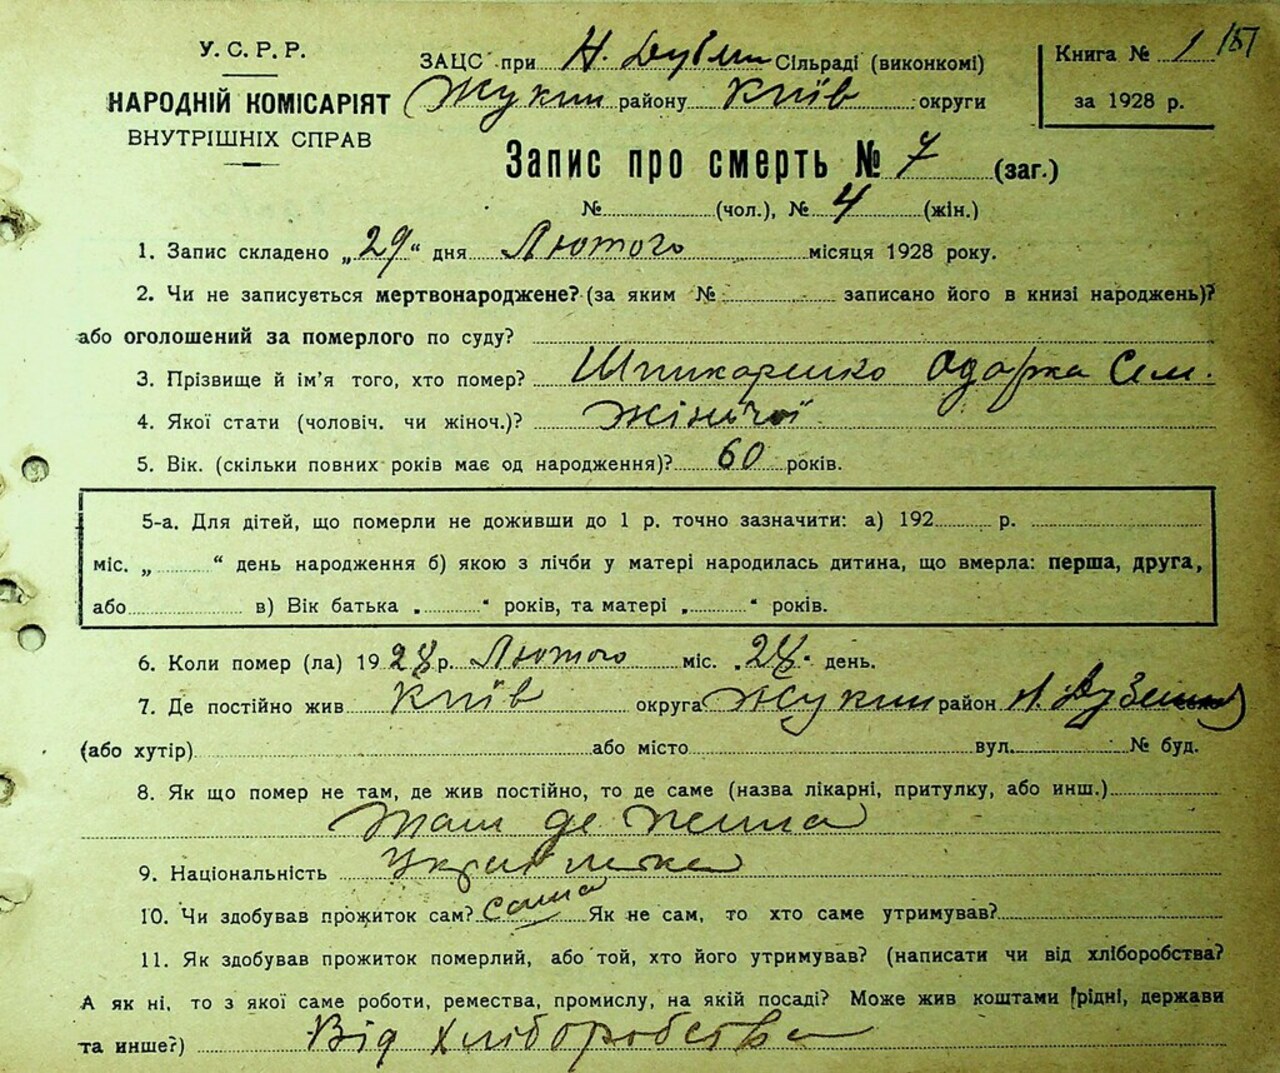 У. С. Р. Р.
НАРОДНІЙ КОМІСАРІЯТ
ВНУТРІШНІХ СПРАВ
ЗАЦС при Н. Дубеч. Сільраді (виконкомі)
Жукин району Київ округи
Книга № 1 151
за 1928 р.
Запис про смерть № 7 (заг.)
№ (чол.), № 4 (жін.)
1. Запис складено „29“ дня Лютого місяця 1928 року.
2. Чи не записується мертвонароджене? (за яким № записано його в книзі народжень)?
або оголошений за померлого по суду?
3. Прізвище й ім’я того, хто помер? Одарка Сем.
4. Якої стати (чоловіч. чи жіноч.)? Жіночої
5. Вік. (скільки повних років має од народження)? 60 років.
5-а. Для дітей, що померли не доживши до 1 р. точно зазначити: а) 192 р.
міс. „ “ день народження б) якою з лічби у матері народилась дитина, що вмерла: перша, друга,
або в) Вік батька „ “ років, та матері „ “ років.
6. Коли помер (ла) 1928 р. Лютого міс. „28“ день.
7. Де постійно жив Київ округа Жукин район Н. Дубечня
(або хутір) або місто вул. № буд.
8. Як що помер не там, де жив постійно, то де саме (назва лікарні, притулку, або инш.)
Там де жила
9. Національність Українка
10. Чи здобував прожиток сам? Сама Як не сам, то хто саме утримував?
11. Як здобував прожиток померлий, або той, хто його утримував? (написати чи від хліборобства?
А як ні, то з якої саме роботи, ремества, промислу, на якій посаді? Може жив коштами рідні, держави
та инше?) Від хліборобства